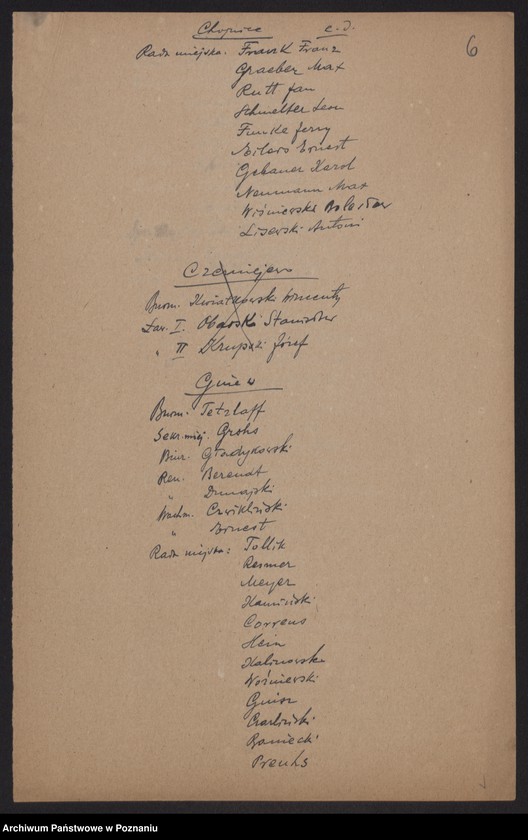 Chojnice c.d.
6
Rada miejska: Frank Franz
Graeber Max
Rutt Jan
Schmelter Leon
Funke Jerzy
Eilers Ernest
Gebauer Karol
Neumann Max
Wiśniewski Bolesław
Lisewski Antoni
Czerniejewo
Burm. Kwiatkowski Wincenty
Ław. I. Obarski Stanisław
" II Krupski Józef
Gniew
Burm. Tetzlaff
Sekr. miej. Grohs
Biur. Gładykowski
Ren. Berendt
" Dunajski
Wachm. Czwikliński
" Ernest
Rada miejska: Tollik
Resmer
Meyer
Kamiński
Correns
Hein
Kalinowski
Woźniewski
Czarliński
Baniecki
Preuhs
Archiwum Państwowe w Poznaniu